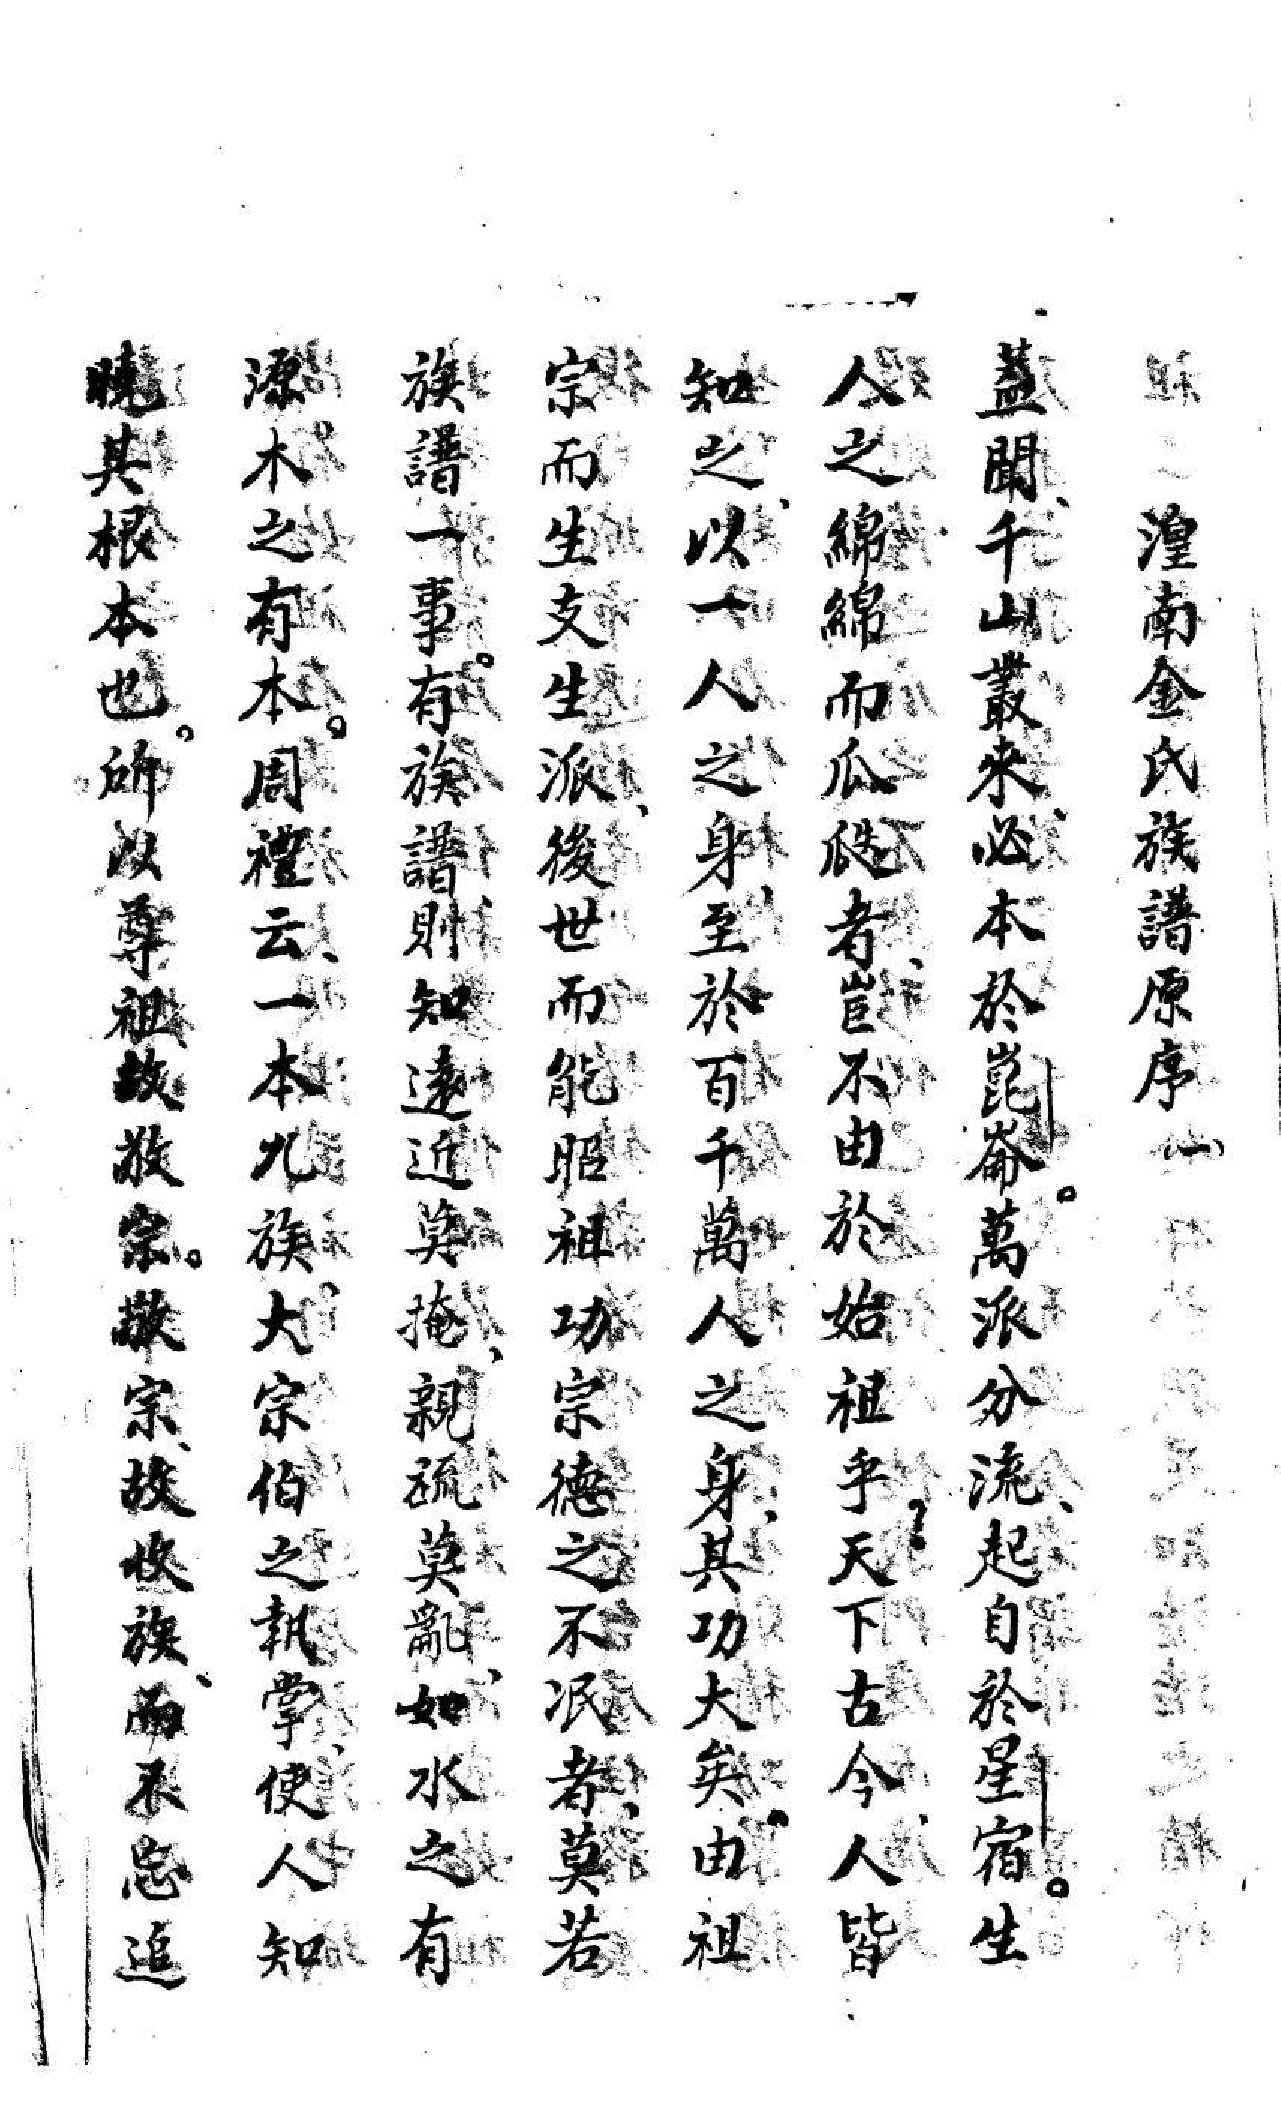 湟南金氏族譜原序一
蓋聞、千山叢來、必本於崑崙。萬派分流、起自於星宿。生
人之綿綿而瓜瓞者、豈不由於始祖乎？天下古今、人皆
知之、以一人之身至於百千萬人之身、其功大矣。由祖
宗而生支生派、後世而能昭祖功宗德之不泯者、莫若
族譜一事。有族譜則知遠近莫掩、親疏莫亂、如水之有
源。木之有本。周禮云、一本九族。大宗伯之執掌、使人知
曉其根本也。所以尊祖故敬宗。敬宗、故收族、而不忘追